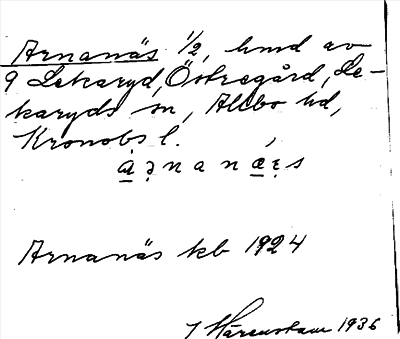 Arnanäs 1/2, hmd av
9 Lekaryd, Östregård, Le-
karyds sn, Allbo hd,
Kronobs l.
Arnanäs kb 1924
1936